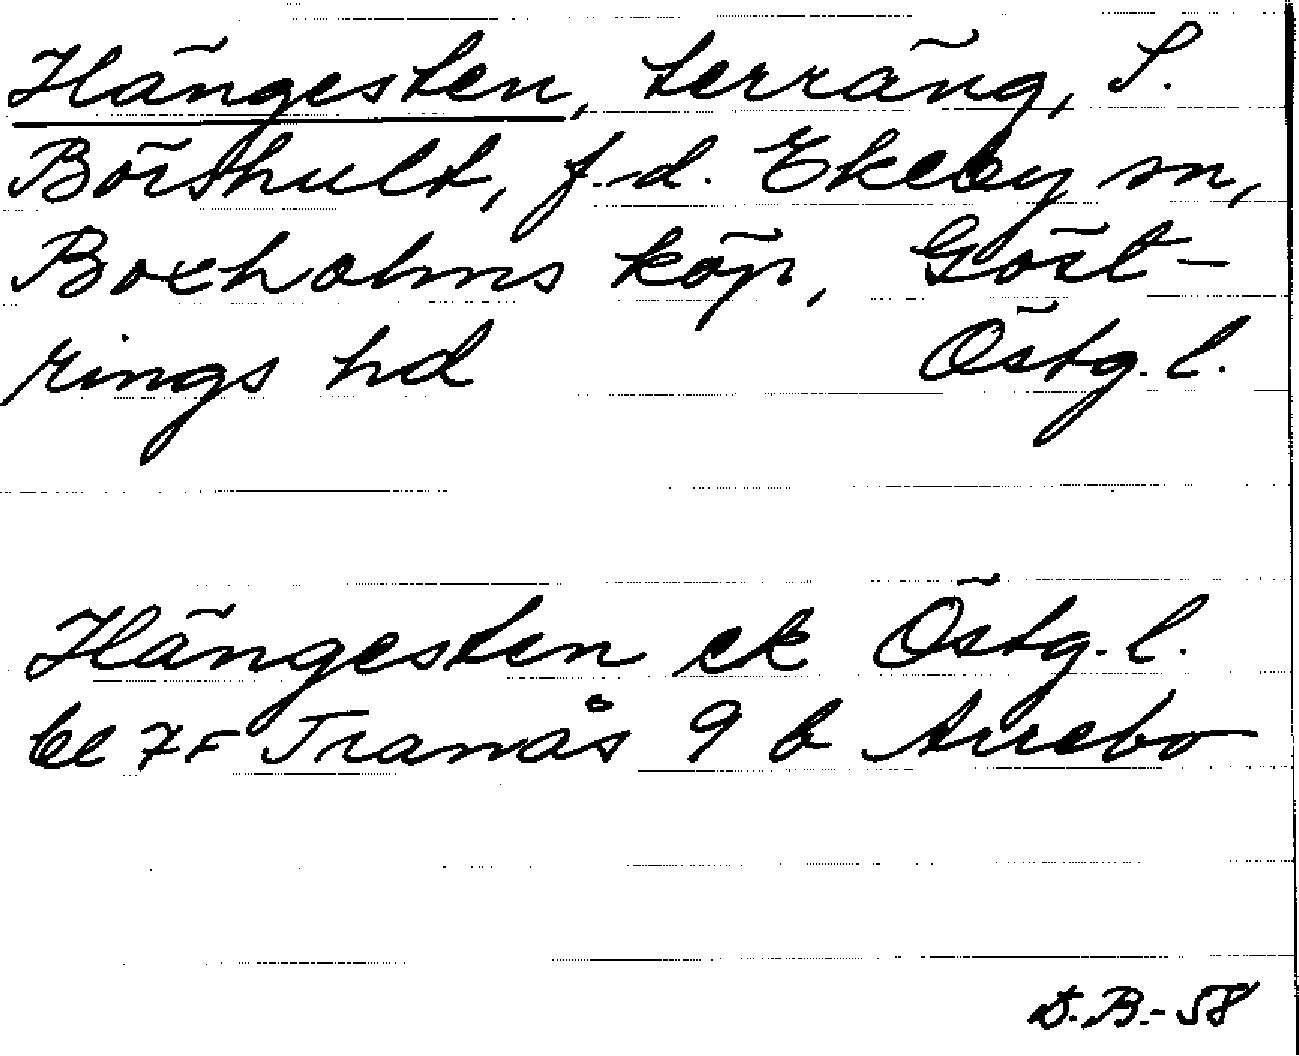 Hängesten, terräng, S.
Börshult, f.d. Ekeby sn,
Boxholms köp, Göst-
rings hd Östg. l.
Hängesten ek Östg. l.
bl 7F Tranås 9 b Arrebo
D.B.-58